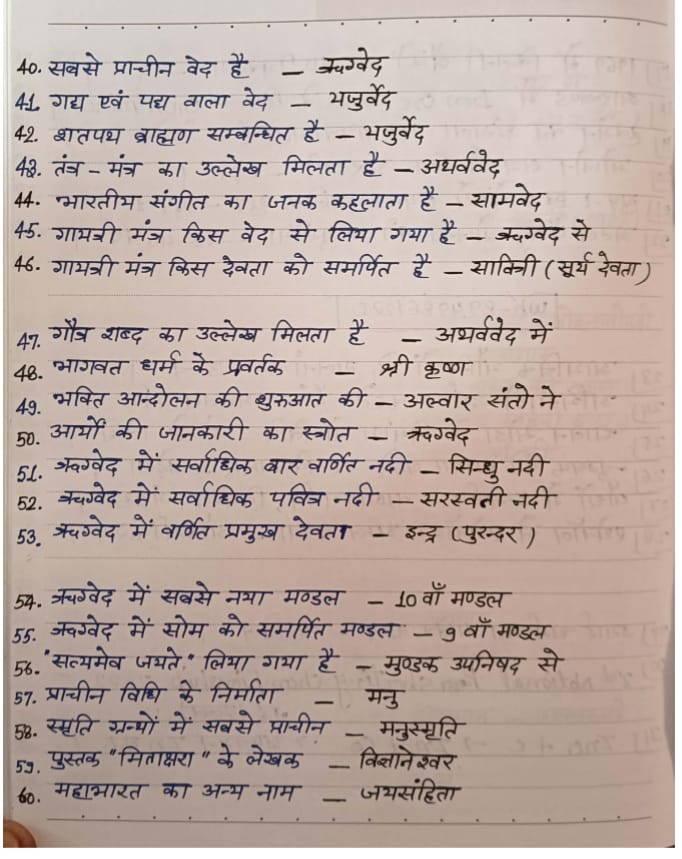 40. सबसे प्राचीन वेद है – ऋग्वेद
41. गद्य एवं पद्य वाला वेद – यजुर्वेद
42. शतपथ ब्राह्मण सम्बन्धित है – यजुर्वेद
43. तंत्र – मंत्र का उल्लेख मिलता है – अथर्ववेद
44. भारतीय संगीत का जनक कहलाता है – सामवेद
45. गायत्री मंत्र किस वेद से लिया गया है – ऋग्वेद से
46. गायत्री मंत्र किस देवता को समर्पित है – सावित्री (सूर्य देवता)
47. गौत्र शब्द का उल्लेख मिलता है – अथर्ववेद में
48. भागवत धर्म के प्रवर्तक – श्री कृष्ण
49. भक्ति आन्दोलन की शुरुआत की – अल्वार संतो ने
50. आर्यो की जानकारी का स्त्रोत – ऋग्वेद
51. ऋग्वेद में सर्वाधिक बार वर्णित नदी – सिन्धु नदी
52. ऋग्वेद में सर्वाधिक पवित्र नदी – सरस्वती नदी
53. ऋग्वेद में वर्णित प्रमुख देवता – इन्द्र (पुरन्दर)
54. ऋग्वेद में सबसे नया मण्डल – 10 वाँ मण्डल
55. ऋग्वेद में सोम को समर्पित मण्डल – 9 वाँ मण्डल
56. "सत्यमेव जयते" लिया गया है – मुण्डक उपनिषद से
57. प्राचीन विधि के निर्माता – मनु
58. स्मृति ग्रन्थों में सबसे प्राचीन – मनुस्मृति
59. पुस्तक "मिताक्षरा" के लेखक – विज्ञानेश्वर
60. महाभारत का अन्य नाम – जयसंहिता